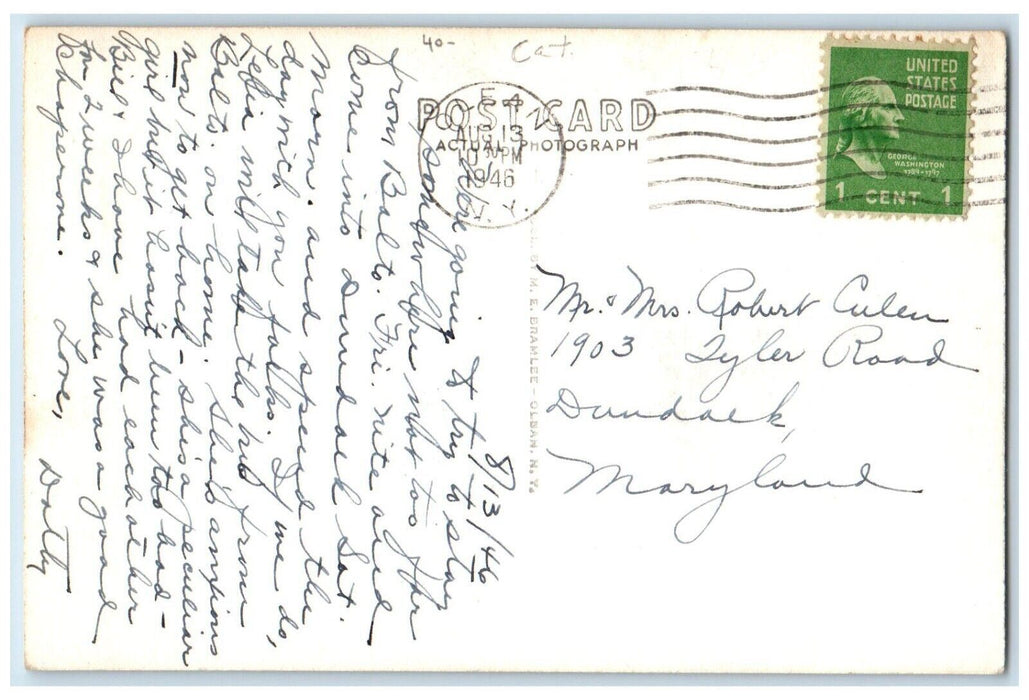 40-
Cat.
POST CARD
ACTUAL PHOTOGRAPH
AUG 13
10 PM
1946
N. Y.
UNITED
STATES
POSTAGE
GEORGE
WASHINGTON
1789-1797
1 CENT 1
M. E. BRAMLEE - OLEAN, N. Y.
8/13/46
going to try to stay
somewhere not too far
from Balto. Fri. nite and
come into Dundalk Sat.
Morn. and spend the
day with you folks. If we do,
Lelia will take the bus from
Balto. on home. She's anxious
now to get back - she's a peculiar
girl but it hasn't been too bad -
Bill & I have had each other
for 2 weeks & she was a good
Chaperone. Love,
Dotty
Mr. & Mrs. Robert Culen
1903 Tyler Road
Dundack,
Maryland